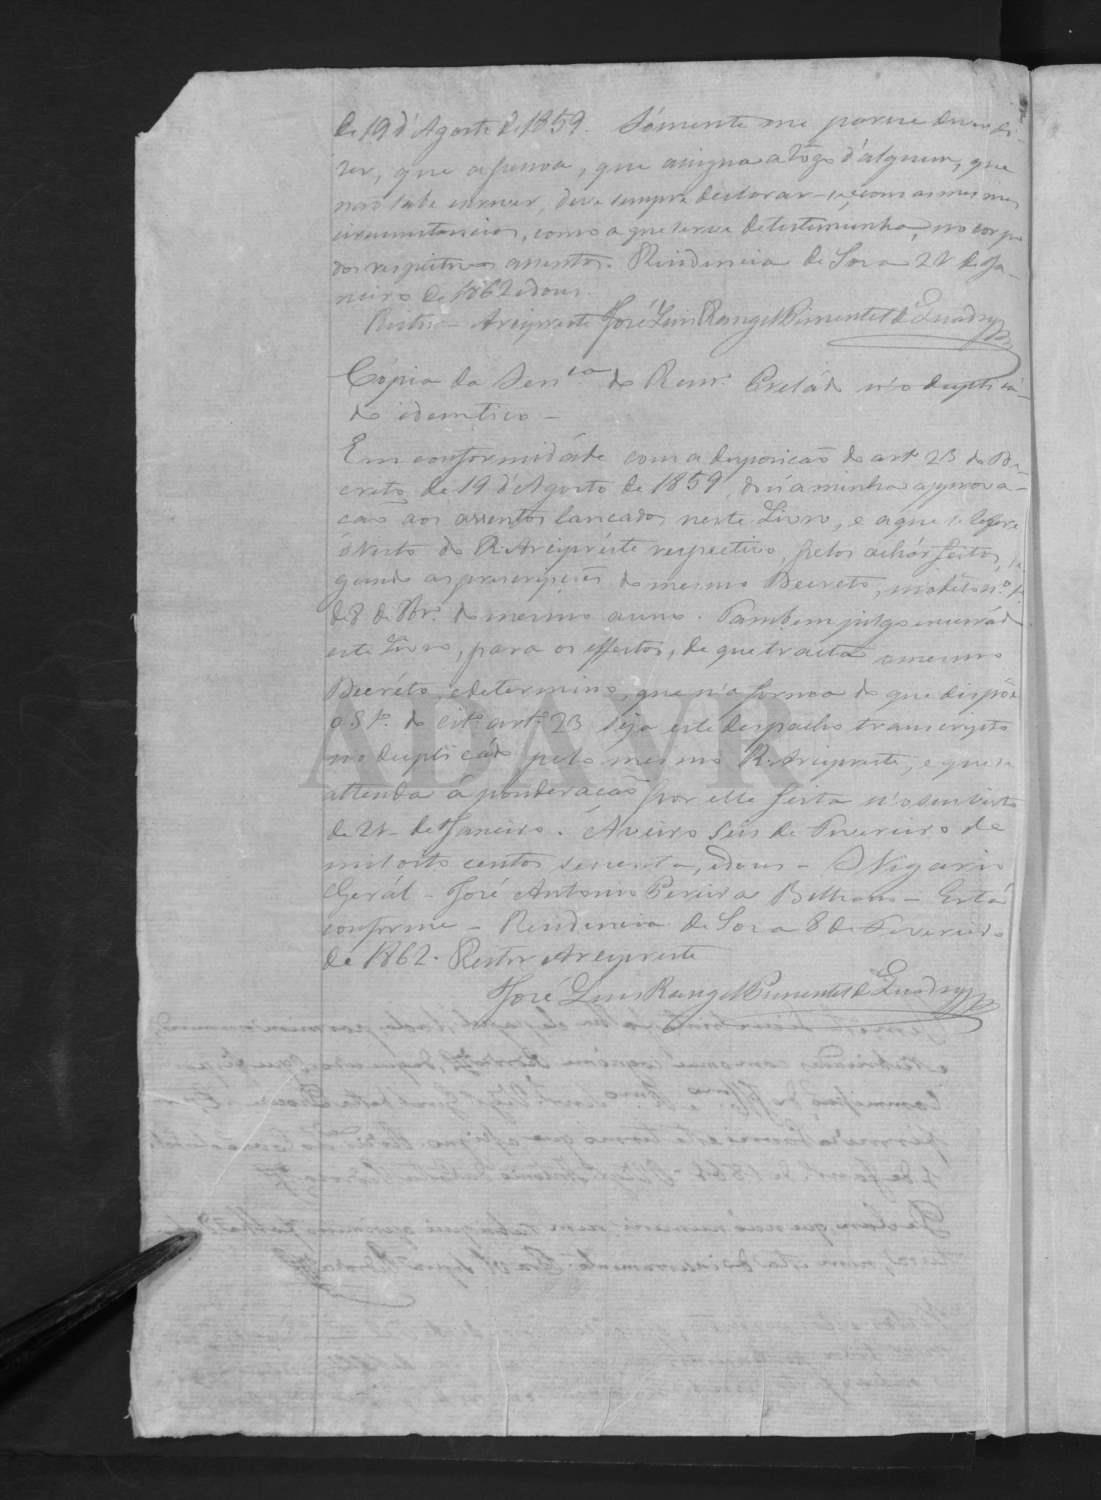 de 19 d'Agosto de 1859. Sómente me parece dever di-
zer, que a pessoa, que assigna a rôgo d'alguem, que
não sabe escrever, deve sempre declarar-se, com as mesmas
circumstancias, como a que serve de testemunha, no corpo
dos respectivos assentos. Residencia de Sosa 21 de Ja-
neiro de 1862 e dous.
Reitor - Arcipreste José Luis Rangel Pimentel de Quadros
Cópia da Sen.ca do Rem.º Prelado n'o duplicá-
do identico -
Em conformidade com a disposicaõ do art.º 23 do De-
creto de 19 d'Agosto de 1859, dou a minha approva-
caõ aos assentos lancados neste Livro, e a que se refere
o Visto do R. Arcipréste respectivo, pelos achár feitos, se-
gundo as prescripções do mesmo Decreto, modêlos n.º
de 8 de 8br.º do mesmo anno. Tambem julgo encerrádo
este Livro, para os effeitos, de que tracta o mesmo
Decréto, e determino, que n'a forma do que dispõe
o § 1º. do cit.º art.º 23 seja este despacho transcripto
no duplicádo pelo mesmo R. Arcipreste, e que se
attenda á ponderaçaõ por elle feita n'o seu visto
de 21 de Janeiro. Aveiro Seis de Fevereiro de
mil oito centos sessenta, e dous - O Vigario
Gerál - José Antonio Pereira Bilhano - Está
conforme - Residencia de Sosa 8 de Fevereiro
de 1862. Reitor Arcipreste
José Luis Rangel Pimentel de Quadros
ADAVR